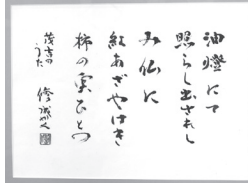 油燈にて
照らし出されし
み仏に
紅あざやけき
柿の実ひとつ
茂吉の
うた